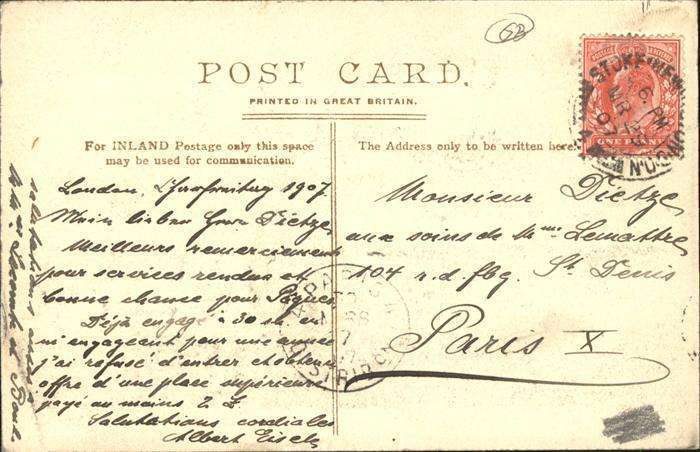 62
POST CARD.
PRINTED IN GREAT BRITAIN.
For INLAND Postage only this space
may be used for communication.
The Address only to be written here.
ONE PENNY
STOKE NEW
6 PM
MR
07
London, 1907
Mein lieber Herr Dietze
Meilleurs remerciements
pour services rendus et
bonne chance pour Pâques
Déjà engagé à 30 sh en
m'engageant pour une année
j'ai refusé d'entrer et obtenu
offre d'une place supérieure
payé au moins 2 £
Salutations cordiales
Albert
salutations aussi à
Monsieur Dietze
aux soins de Mme Lemattre
104 r. d. fbg. St Denis
Paris X
PARIS
DISTRIBUTION